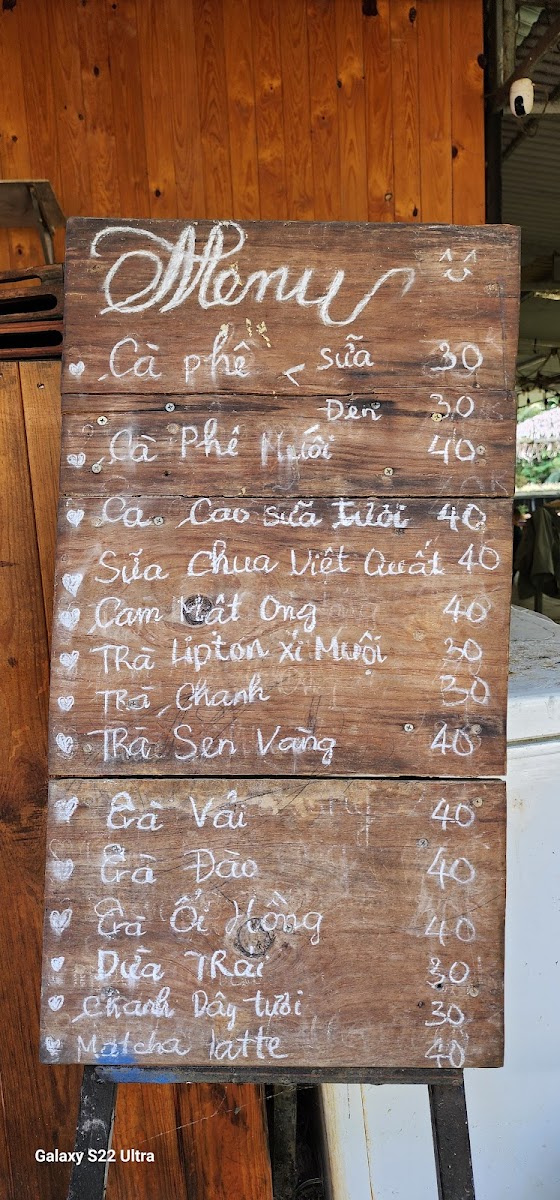 Menu
Cà phê < sữa 30
Đen 30
Cà Phê Muối 40
Ca Cao sữa tươi 40
Sữa Chua Việt Quất 40
Cam Mật Ong 40
TRà Lipton xí Muội 30
TRà Chanh 30
TRà Sen Vàng 40
Trà Vải 40
Trà Đào 40
Trà Ổi Hồng 40
Dừa TRái 30
Chanh Dây tươi 30
Matcha latte 40
Galaxy S22 Ultra